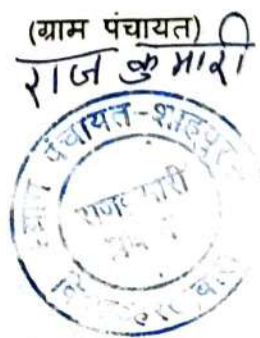 (ग्राम पंचायत)
राज कुमारी
ग्राम पंचायत-शाहपुर
राजकुमारी